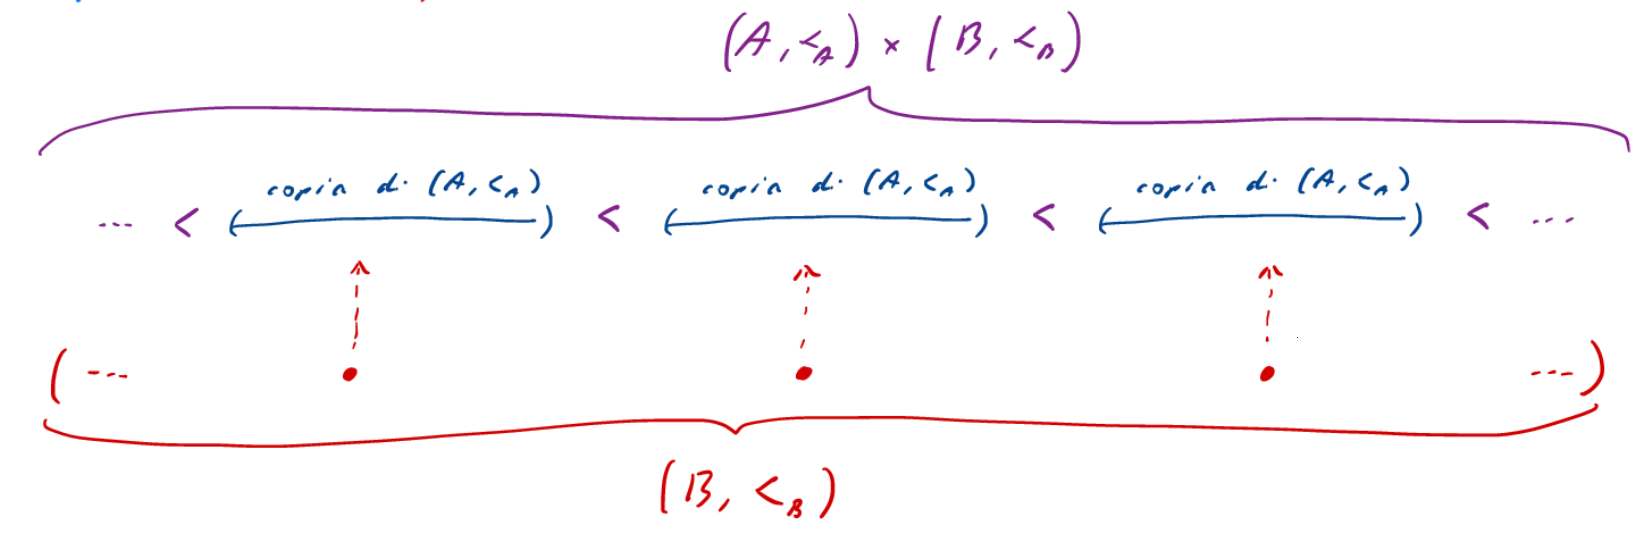 (A, <_A) × (B, <_B)
copia di (A, <_A) copia di (A, <_A) copia di (A, <_A)
... < ( ) < ( ) < ( ) < ...
( ... ... )
(B, <_B)